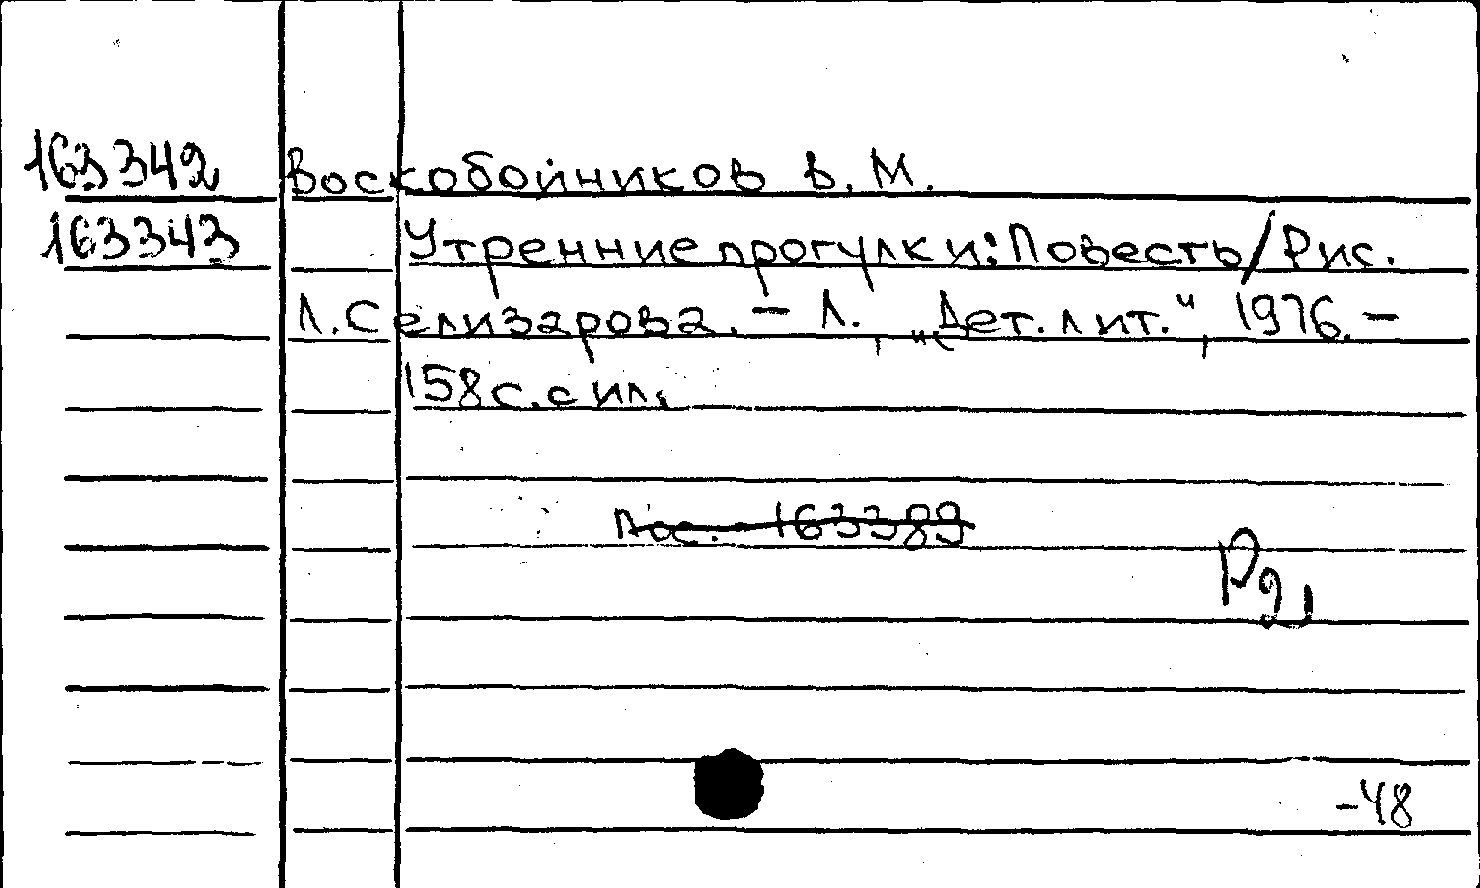 163342 Воскобойников В. М.
163343 Утренние прогулки: Повесть/Рис.
Л. Селизарова. – Л., „Дет. лит.", 1976. –
158 с. с ил.
Пос. – 163389
Р2
-48